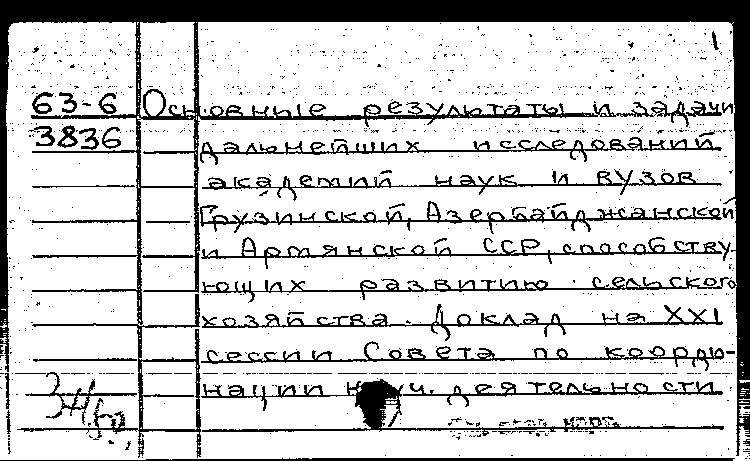 1
63-6 Основные результаты и задачи
3836 дальнейших исследований
академий наук и вузов
Грузинской, Азербайджанской
и Армянской ССР, способству
ющих развитию сельского
хозяйства. Доклад на XXI
сессии Совета по коорди-
нации деятельности